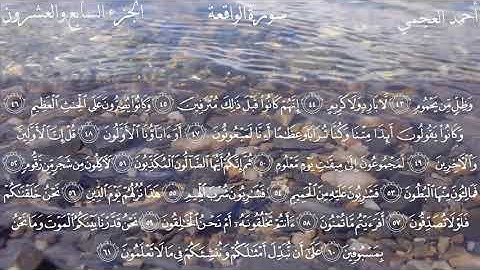 أحمد العجمي سورة الواقعة الجزء السابع والعشرون
وَظِلٍّ مِّن يَحْمُومٍ ٤٣ لَّا بَارِدٍ وَلَا كَرِيمٍ ٤٤ إِنَّهُمْ كَانُوا۟ قَبْلَ ذَٰلِكَ مُتْرَفِينَ ٤٥ وَكَانُوا۟ يُصِرُّونَ عَلَى ٱلْحِنثِ ٱلْعَظِيمِ ٤٦
وَكَانُوا۟ يَقُولُونَ أَئِذَا مِتْنَا وَكُنَّا تُرَابًا وَعِظَٰمًا أَءِنَّا لَمَبْعُوثُونَ ٤٧ أَوَءَابَآؤُنَا ٱلْأَوَّلُونَ ٤٨ قُلْ إِنَّ ٱلْأَوَّلِينَ
وَٱلْءَاخِرِينَ ٤٩ لَمَجْمُوعُونَ إِلَىٰ مِيقَٰتِ يَوْمٍ مَّعْلُومٍ ٥٠ ثُمَّ إِنَّكُمْ أَيُّهَا ٱلضَّآلُّونَ ٱلْمُكَذِّبُونَ ٥١ لَءَاكِلُونَ مِن شَجَرٍ مِّن زَقُّومٍ ٥٢
فَمَالِـُٔونَ مِنْهَا ٱلْبُطُونَ ٥٣ فَشَٰرِبُونَ عَلَيْهِ مِنَ ٱلْحَمِيمِ ٥٤ فَشَٰرِبُونَ شُرْبَ ٱلْهِيمِ ٥٥ هَٰذَا نُزُلُهُمْ يَوْمَ ٱلدِّينِ ٥٦ نَحْنُ خَلَقْنَٰكُمْ
فَلَوْلَا تُصَدِّقُونَ ٥٧ أَفَرَءَيْتُم مَّا تُمْنُونَ ٥٨ ءَأَنتُمْ تَخْلُقُونَهُۥٓ أَمْ نَحْنُ ٱلْخَٰلِقُونَ ٥٩ نَحْنُ قَدَّرْنَا بَيْنَكُمُ ٱلْمَوْتَ وَمَا نَحْنُ
بِمَسْبُوقِينَ ٦٠ عَلَىٰٓ أَن نُّبَدِّلَ أَمْثَٰلَكُمْ وَنُنشِئَكُمْ فِى مَا لَا تَعْلَمُونَ ٦١